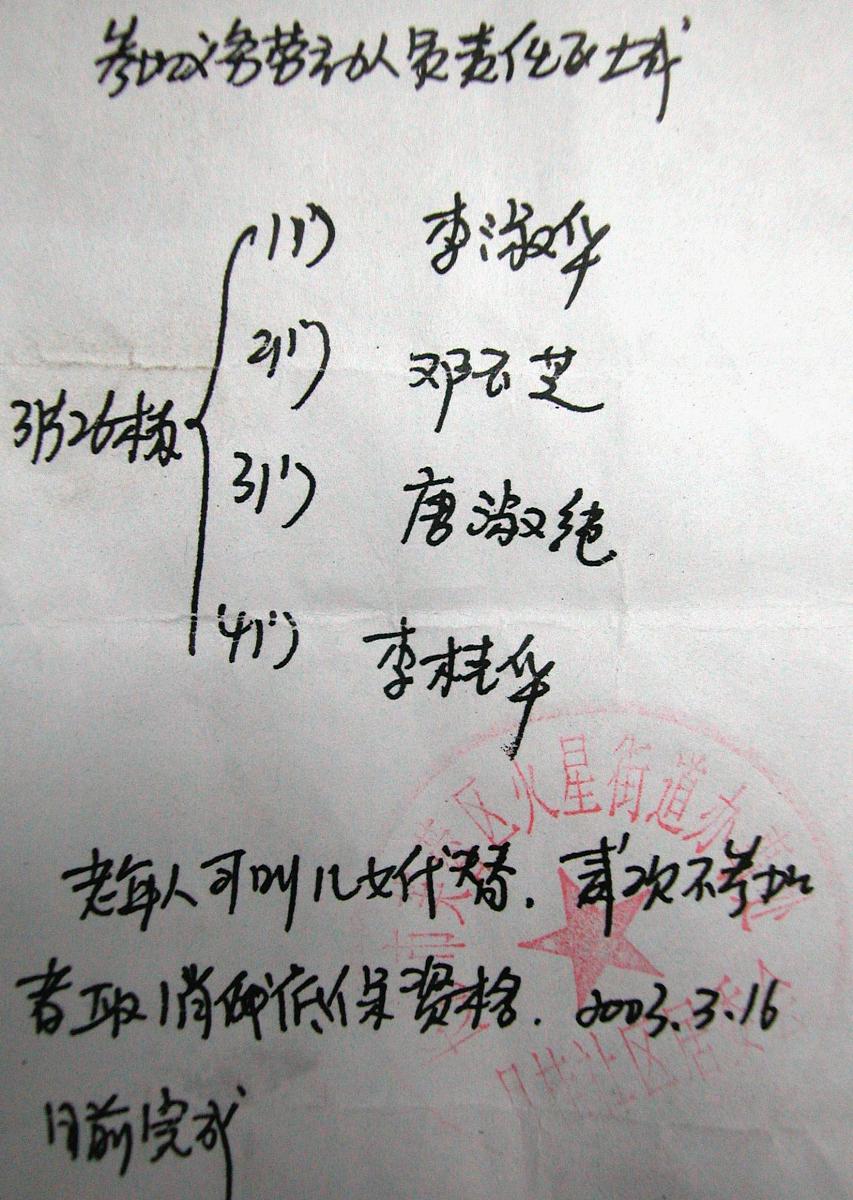 参加义务劳动人员责任区域
1门 李淑华
2门 邓云芝
3片26栋
3门 唐淑纯
4门 李桂华
区火星街道办
老年人可叫儿女代替. 两次不参加
者取消低保资格. 2003.3.16
日前完成
社区居